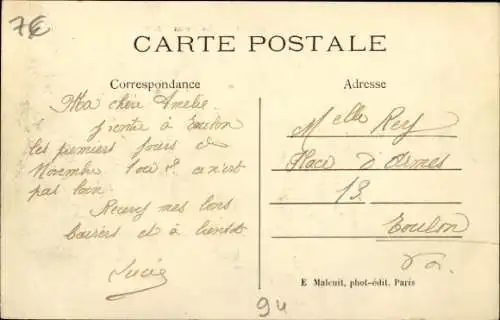 7€
CARTE POSTALE
Correspondance
Adresse
Ma chère Amélie
à Toulon
les premiers jours de
Novembre ce n'est
pas loin
Recevez mes bons
baisers et à bientôt
Lucie
Melle Rey
Place d'Armes
13
Toulon
Var
E Maleuit, phot-édit. Paris
94